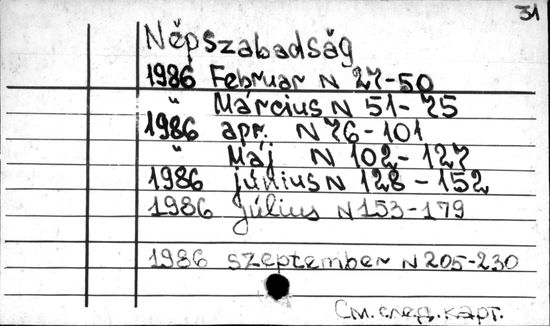 31
Népszabadság
1986 Februar N 27-50
" Március N 51-75
1986 apr. N 76-101
" Máj N 102-127
1986 június N 128-152
1986 Július N 153-179
1986 szeptember N 205-230
См. след. карт.